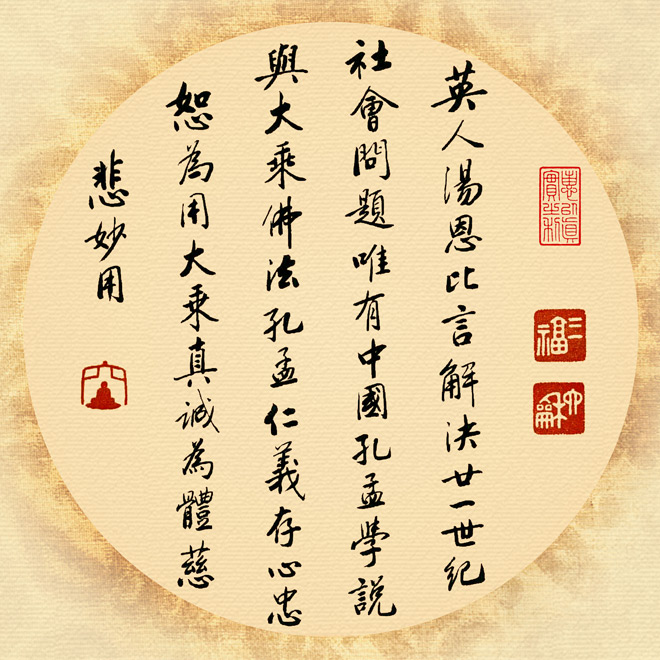 英人湯恩比言解決廿一世紀
社會問題唯有中國孔孟學説
與大乘佛法孔孟仁義存心忠
恕為用大乘真誠為體慈
悲妙用